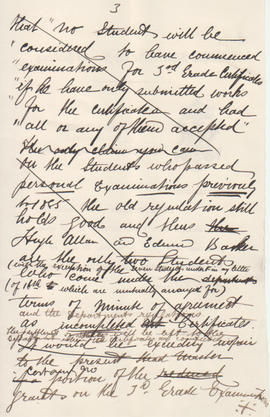 3
that "no Student will be
"considered to have commenced
"examinations for 3rd Grade Certificates
"if he have only submitted works
"for the certificates and had
"all or any of them accepted"
the only claim you can
on the Students who passed
personal Examinations previously
to 1885 the old regulation still
holds good and thus
Hugh Allan and Edwin Barker
are the only two Students
(with the exception of the seven students mentioned in my letter
who come under the
of 16th to which are mutually arranged for)
and the Departments regulations
terms of Minute of agreement
as incompleted Certificates
I would
to the present Head Master
portion of the reduced
grants on the 3rd Grade Examinations